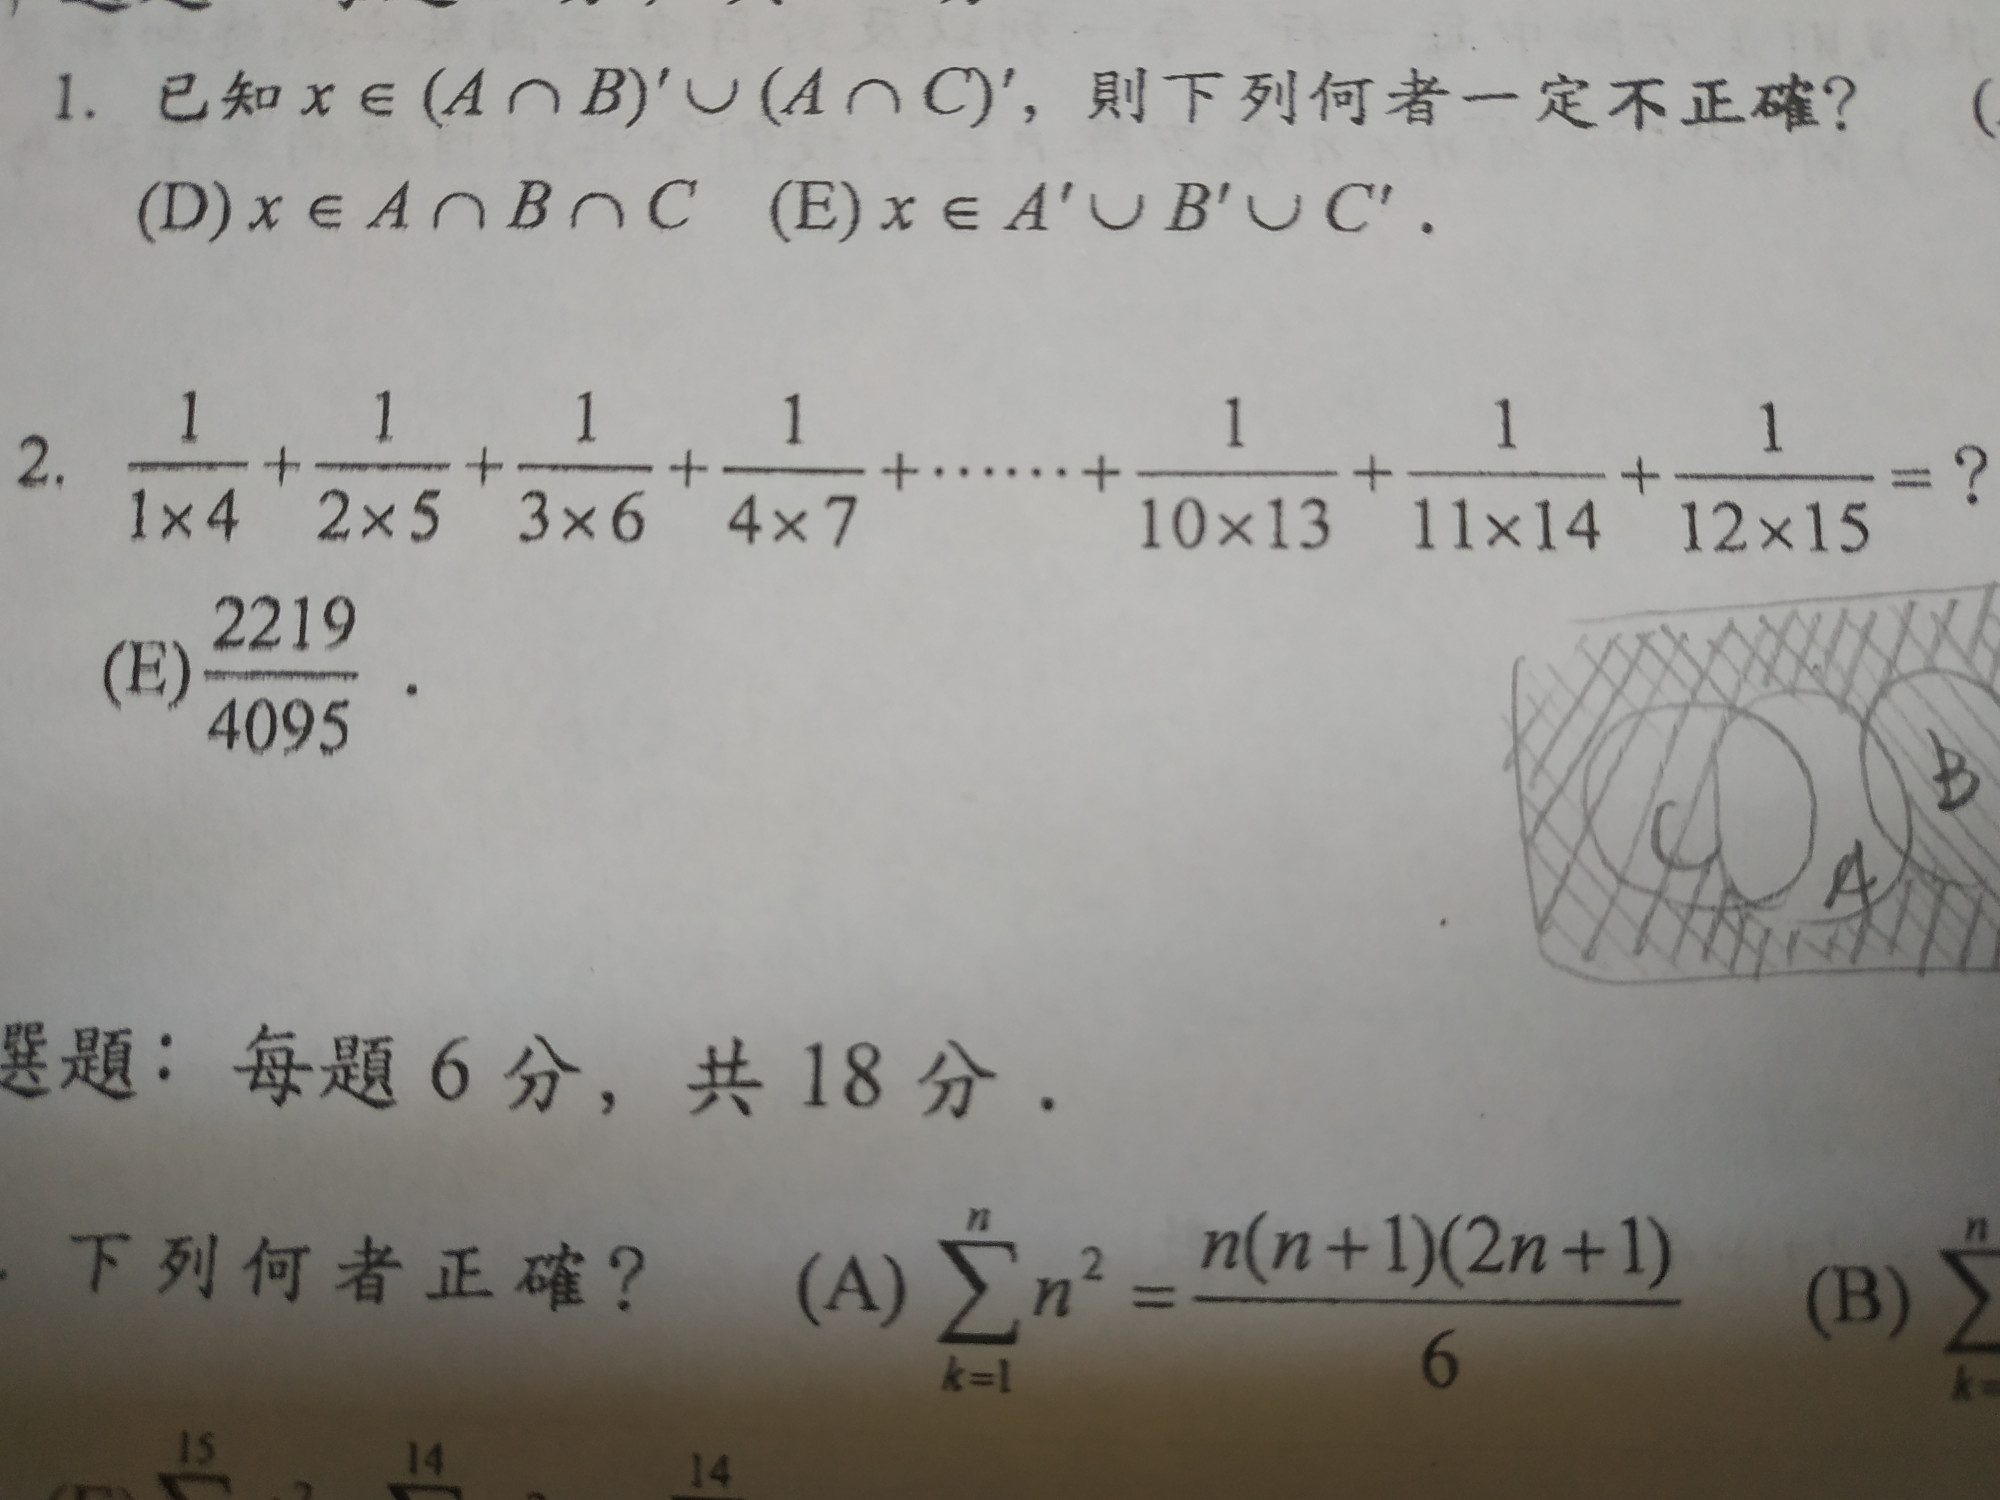 1. 已知 x ∈ (A ∩ B)′ ∪ (A ∩ C)′, 則下列何者一定不正確? (
(D) x ∈ A ∩ B ∩ C (E) x ∈ A′ ∪ B′ ∪ C′ .
2. 1/(1×4) + 1/(2×5) + 1/(3×6) + 1/(4×7) + ⋯⋯ + 1/(10×13) + 1/(11×14) + 1/(12×15) = ?
(E) 2219/4095 .
C A B
選題: 每題 6 分, 共 18 分 .
. 下列何者正確? (A) ∑_{k=1}^{n} n² = n(n+1)(2n+1)/6 (B) ∑
15 14 14